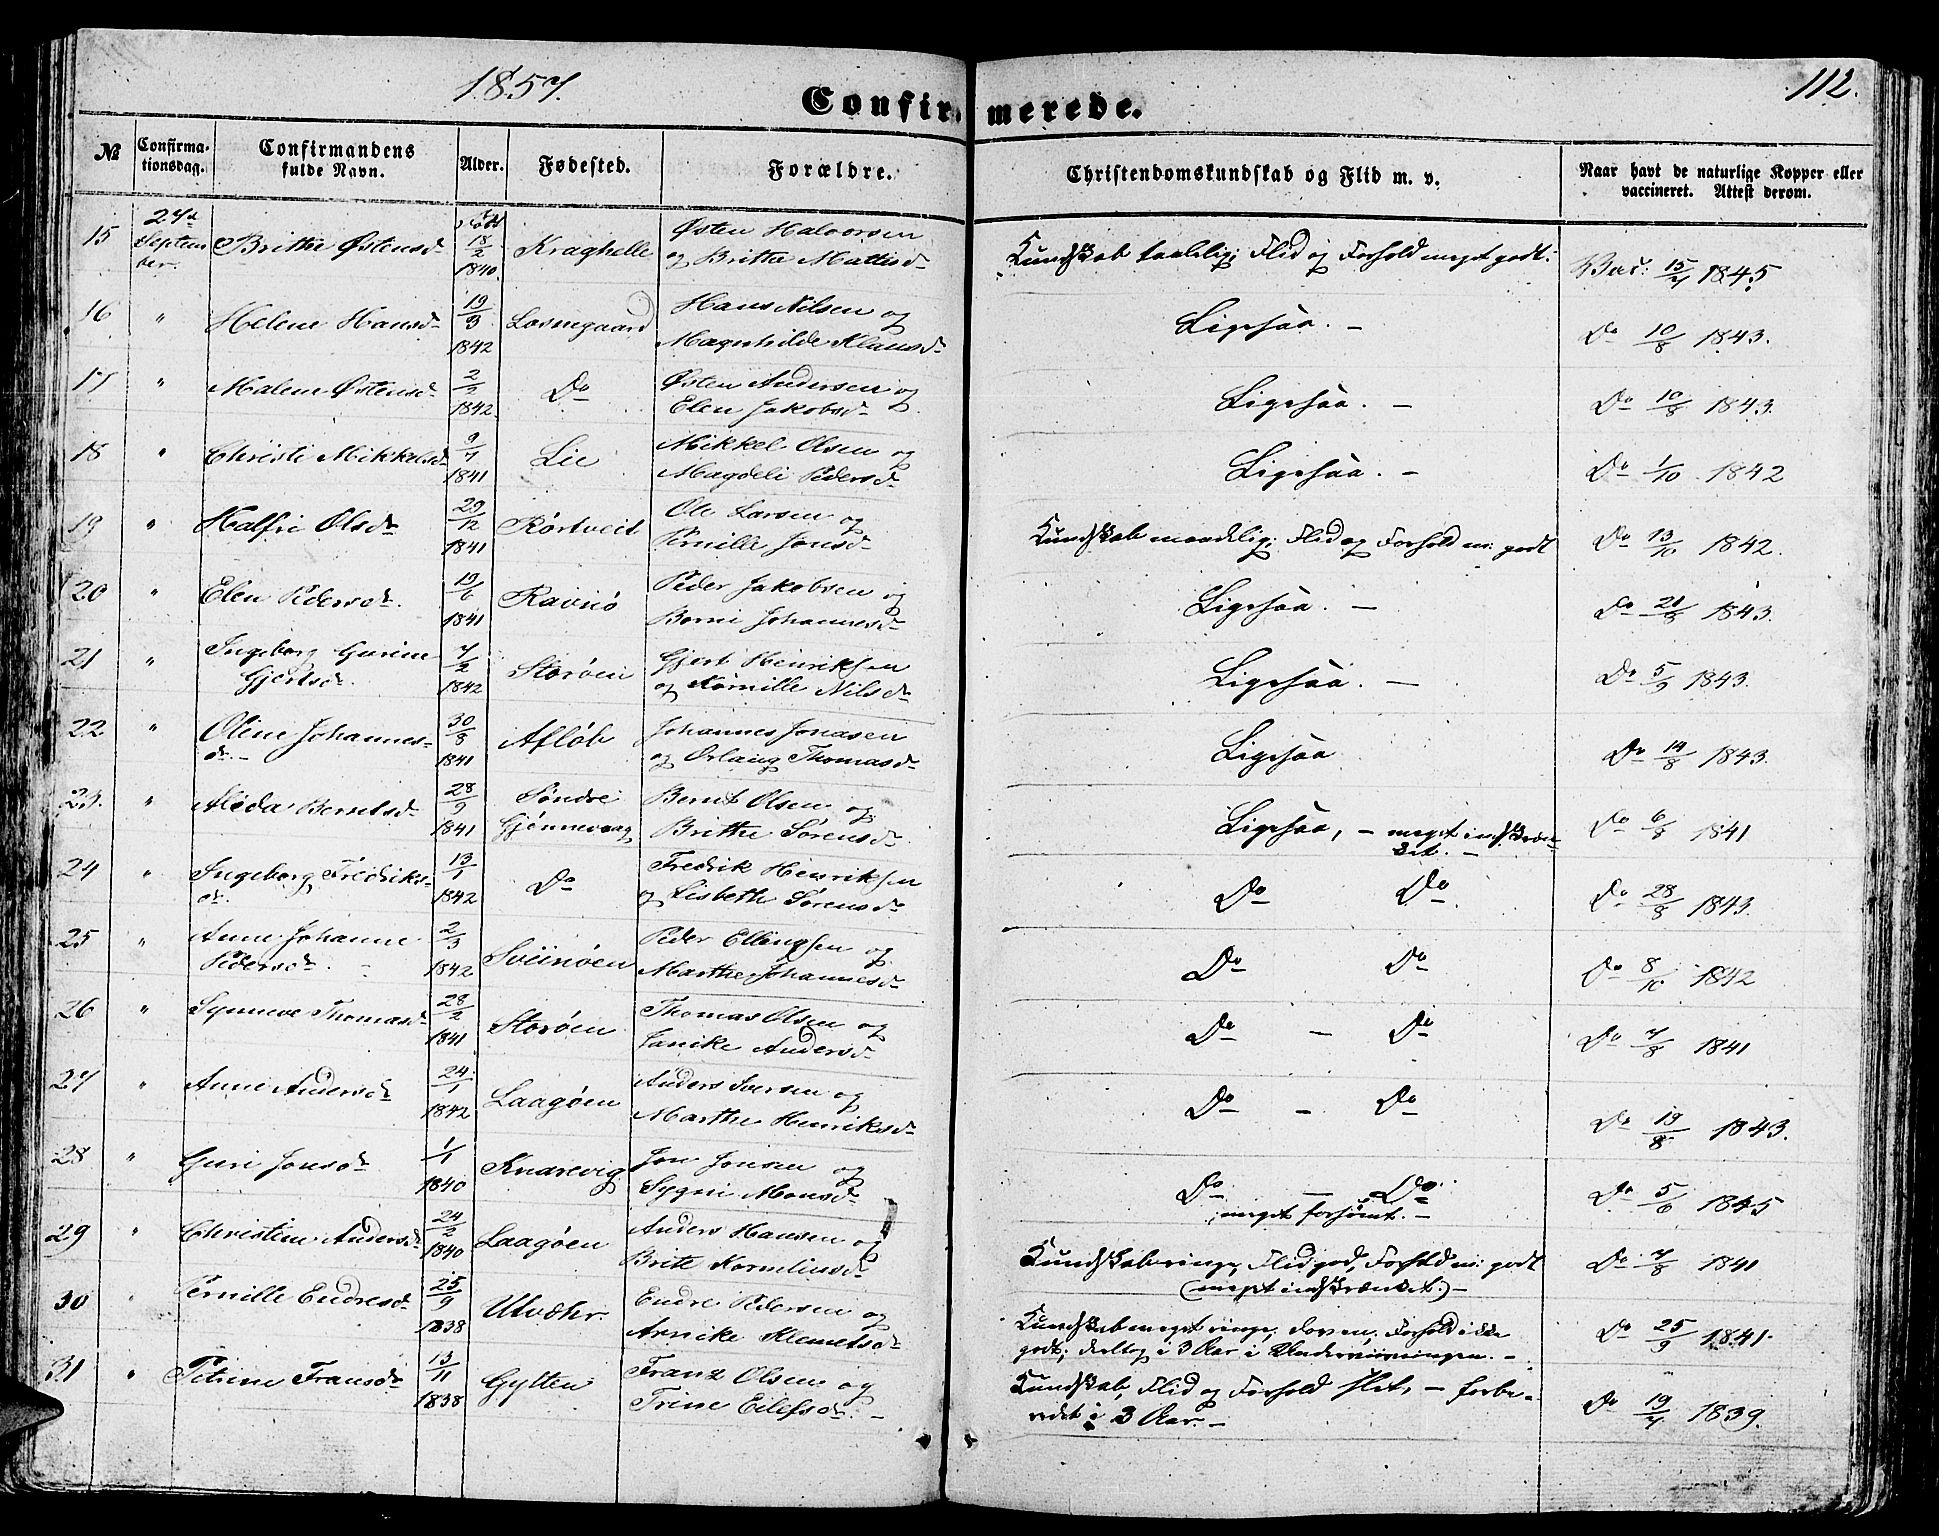 1857.
112.
Confirmerede.
№
Confirma-
tionsdag.
Confirmandens
fulde Navn.
Alder.
Fødested.
Forældre.
Christendomskundskab og Flid m. v.
Naar havt de naturlige Kopper eller
vaccineret. Attest derom.
15 27d Septem ber. Brithe Østensd. født 18/2 1840. Kraghelle Østen Halvorsen
og Brithe Mattisd. Kundskab taalelig; Flid og Forhold meget godt. Vac: 15/7 1845
16 " Helene Hansd. 19/3 1842 Losnegaard Hans Nilsen og
Magnhilde Klausd. Ligesaa. – Do 10/8 1843.
17 " Malene Østensd. 2/2 1842. Do Østen Andersen og
Elen Jakobsd. Ligesaa. – Do 10/8 1843.
18 " Christi Mikkelsd. 9/7 1841 Lie Mikkel Olsen og
Magdeli Pedersd. Ligesaa. – Do 1/10 1842
19 " Halfri Olsd. 29/12 1841 Rørtveit Ole Larsen og
Pernille Jonsd. Kundskab maadelig; Flid og Forhold m: godt Do 13/10 1842.
20 " Elen Pedersd. 19/6 1841 Ravnø Peder Jakobsen og
Borni Johannesd. Ligesaa. – Do 21/8 1843.
21 " Ingeborg Gurine
Gjertsd. 7/2 1842 Storøen Gjert Henriksen
og Pernille Nilsd. Ligesaa. – Do 5/9 1843.
22 " Oline Johannes-
d. – 30/8 1841 Afløb Johannes Jonasen
og Orlaug Thomasd. Ligesaa Do 14/8 1843.
23. " Alida Berntsd. 28/9 1841 Søndre
Gjønnevaag Bernt Olsen og
Brithe Sørensd. Ligesaa, – meget indskræn-
ket. – Do 6/8 1841
24 " Ingeborg Fredriks-
d. 13/1 1842 Do Fredrik Henriksen
og Lisbeth Sørensd. Do Do Do 28/8 1843.
25 " Anne Johanne
Pedersd. – 2/3 1842 Sveinøen Peder Ellingsen og
Marthe Johannesd. Do Do Do 8/10 1842
26 " Synneve Thomasd. 28/2 1841 Storøen Thomas Olsen og
Janike Andersd. Do – Do Do 7/8 1841
27 " Anne Andersd. 24/1 1842 Laagøen Anders Iversen og
Marthe Henriksd. Do – Do Do 19/8 1843.
28 " Guri Jonsd. 1/1 1840 Knarevig Jon Jonsen og
Sygni Monsd. Do – Do
meget forsømt. – Do 5/6 1845
29 " Christine Andersd. 24/2 1840 Laagøen Anders Hansen og
Brite Korneliusd. Kundskab ringe, Flid god, Forhold m: godt
(meget indskrænket.) – Do 7/8 1841
30 " Pernille Endresd. 25/9 1838 Utvær. Endre Pedersen og
Annike Klemetsd. Kundskab meget ringe, doven, Forhold ikke
godt; deeltog i 3 Aar i Underviisningen. – Do 25/9 1841.
31 " Petrine Fransd. 13/11 1838 Gytten Franz Olsen og
Trine Eilefsd. – Kundskab, Flid og Forhold slet, – forbe-
redet i 3 Aar. – Do 19/7 1839.